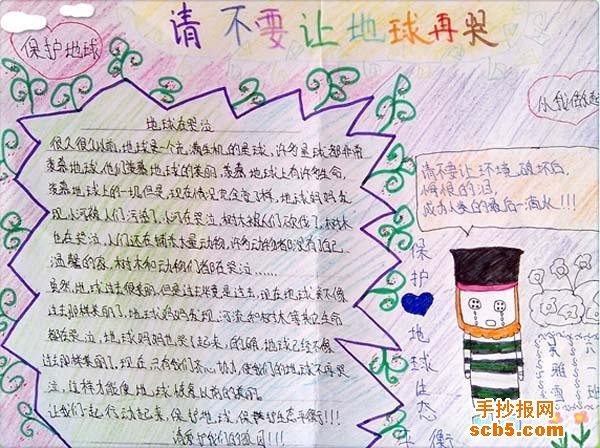 请不要让地球再哭
保护地球
从我做起
地球在哭泣
很久很久以前,地球是一个充满生机的星球,许多星球都非常
羡慕地球,他们羡慕地球的美丽,羡慕地球上有许多生命,
羡慕地球上的一切但是,现在情况完全变了样,地球妈妈发
现,小河被人们污染了,小河在哭泣,树木被人们砍伐了,树木
也在哭泣,人们还在捕杀大量动物,许多动物都没有自己
温馨的家,树木和动物们都在哭泣……
虽然,地球过去很美丽,但是过去毕竟是过去,现在地球并不像
过去那样美丽了,地球妈妈发现,河流和树木等其它生命
都在哭泣,地球妈妈也哭了起来,的确,地球已经不像
过去那样美丽了,现在,只有我们齐心协力,使我们的地球不再哭
泣,这样才能使地球恢复以前的美丽。
让我们一起行动起来,保护地球,保护生态平衡!!!
请爱护我们的家园!!!
请不要让环境破坏后,
悔恨的泪,
成为人类的最后一滴水!!!
保护地球生态
平衡
八一班
手抄报网
scb5.com